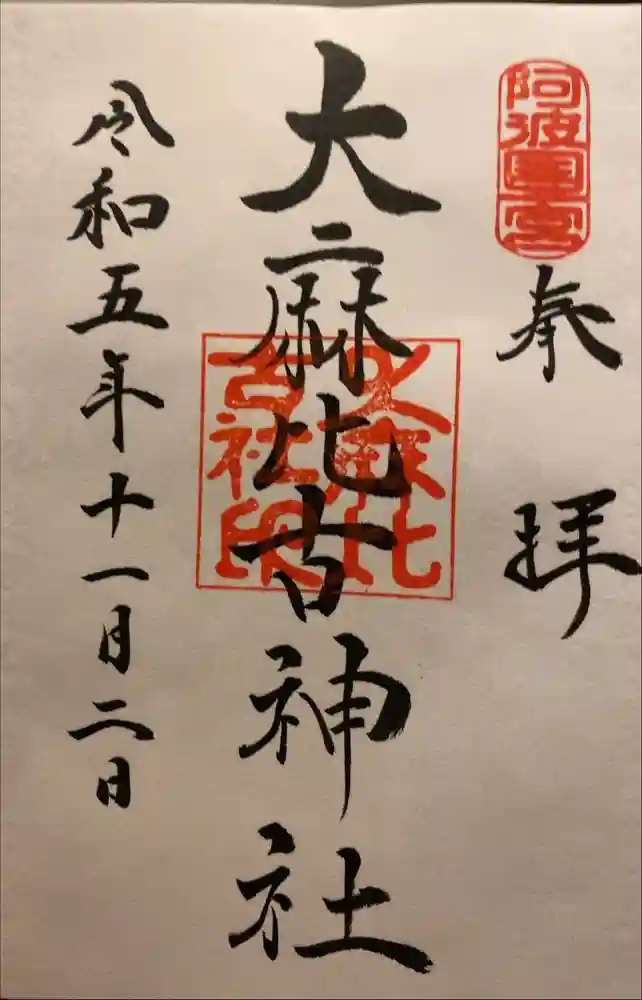 阿波國一宮
奉拝
大麻比古神社
大麻比
古社印
令和五年十一月二日